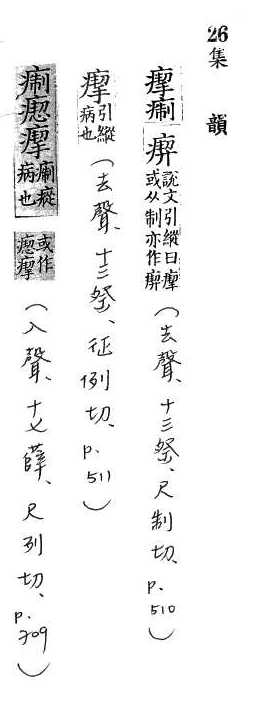 26 集 韻
痸 說文引縱曰 或从制亦作 （去聲、十三祭、尺制切、p.510）
引縱病也（去聲、十三祭、征例切、p.511）
痸瘛 痸瘲病也 或作瘛（入聲、十七薛、尺列切、p.709）